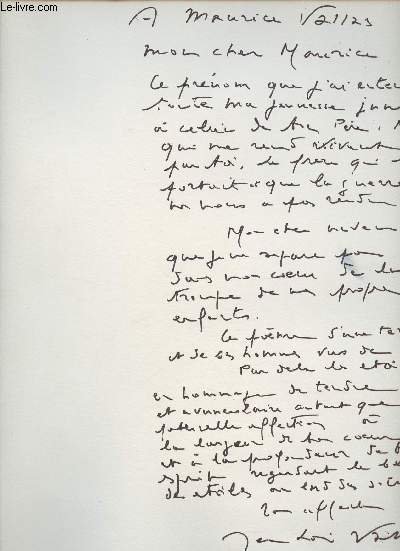 Le-livre.com
A Maurice Vallas
mon cher Maurice
Ce prénom que j'ai enten
toute ma jeunesse
à celui de ton Père,
qui me rend vivant
par toi, le frere qui
portait et que la guerre
ne nous a pas rendu
Mon cher neveu
que je ne sépare pas
dans mon coeur de la
troupe de mes propre
enfants.
Ce poème d'une ter
et de ses hommes vus de
Par dela les etoi
en hommage de tendre
et avunculaire autant que
paternelle affection à
la largeur de ton coeur
et à la profondeur de
esprit regardant le
de etoiles
Ton affect